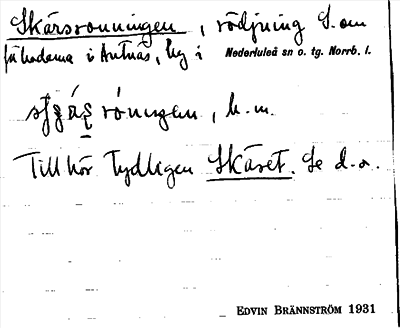 Skärsronningen, rödjning S. om
fäbodarna i Antnäs, by i Nederluleå sn o. tg. Norrb. l.
róningen, b. m.
Till hör tydligen Skäret. Se d. o.
EDVIN BRÄNNSTRÖM 1931